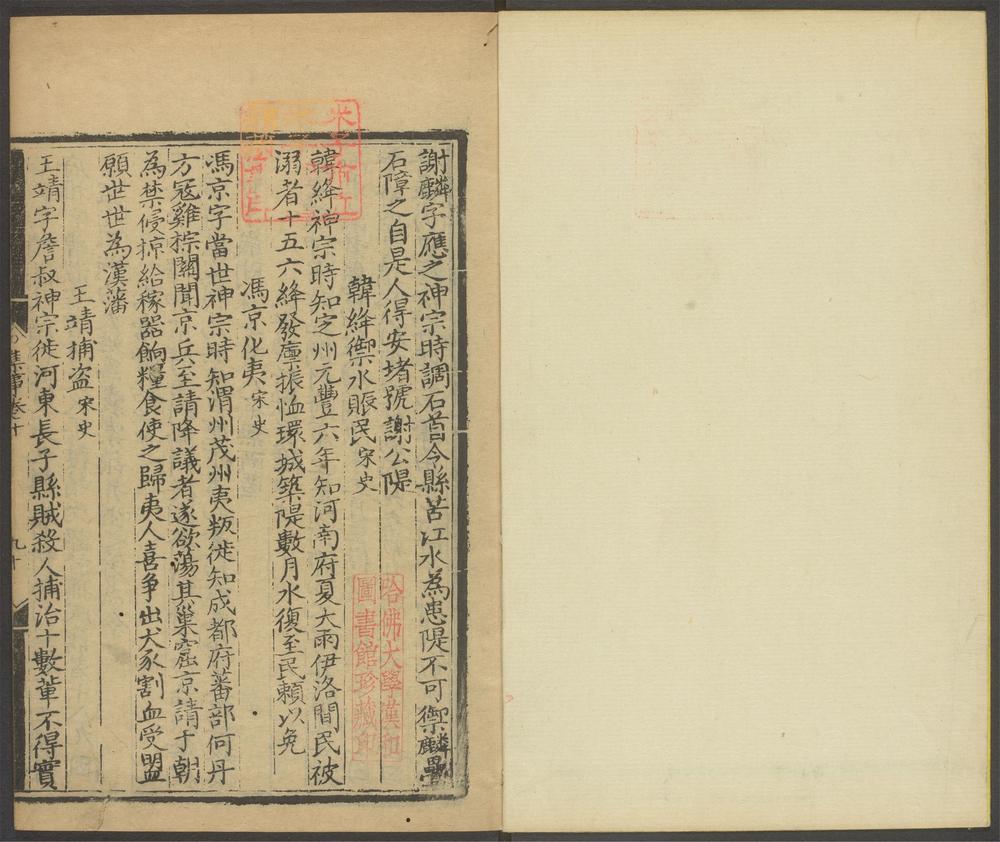 謝麟字應之神宗時調石首今縣苦江水為患隄不可禦麟疊
石障之自是人得安堵號謝公隄
韓絳禦水賑民宋史
韓絳神宗時知定州元豐六年知河南府夏大雨伊洛間民被
溺者十五六絳發廪振恤環城築隄數月水復至民賴以免
馮京化夷宋史
馮京字當世神宗時知渭州茂州夷叛徙知成都府蕃部何丹
方冦雞棕關聞京兵至請降議者遂欲蕩其巢窟京請于朝
為禁侵掠給稼器餉糧食使之歸夷人喜爭出犬豕割血受盟
願世世為漢藩
王靖捕盗宋史
王靖字詹叔神宗徙河東長子縣賊殺人捕治十數輩不得實
集事卷十
九十
哈佛大學漢和
圖書館珍藏印